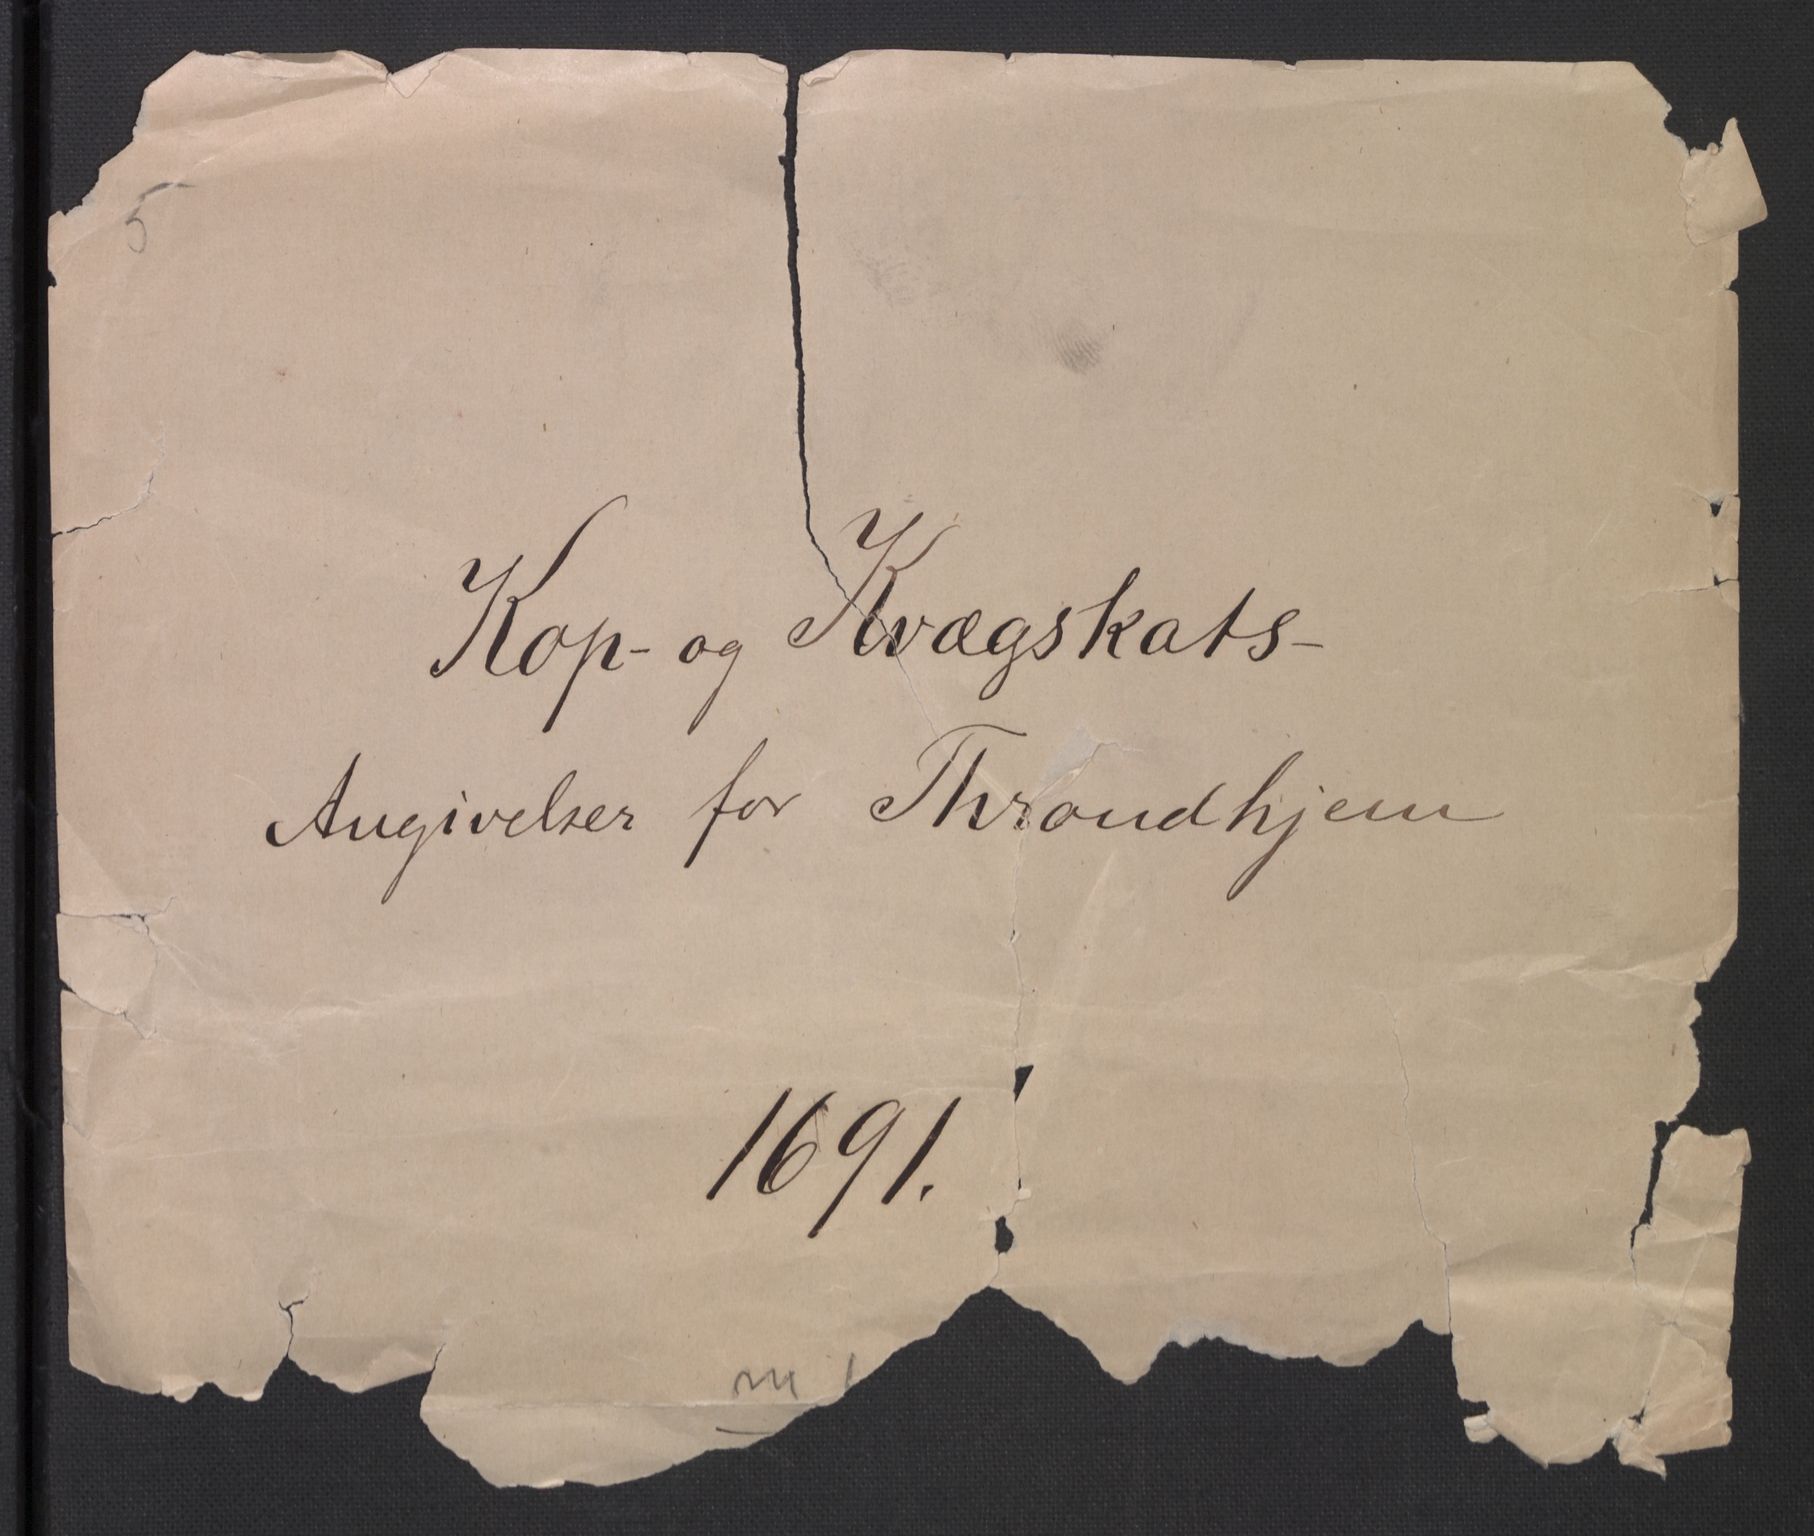 5
Kop- og Kvægskats-
Angivelser for Throndhjem
1691.